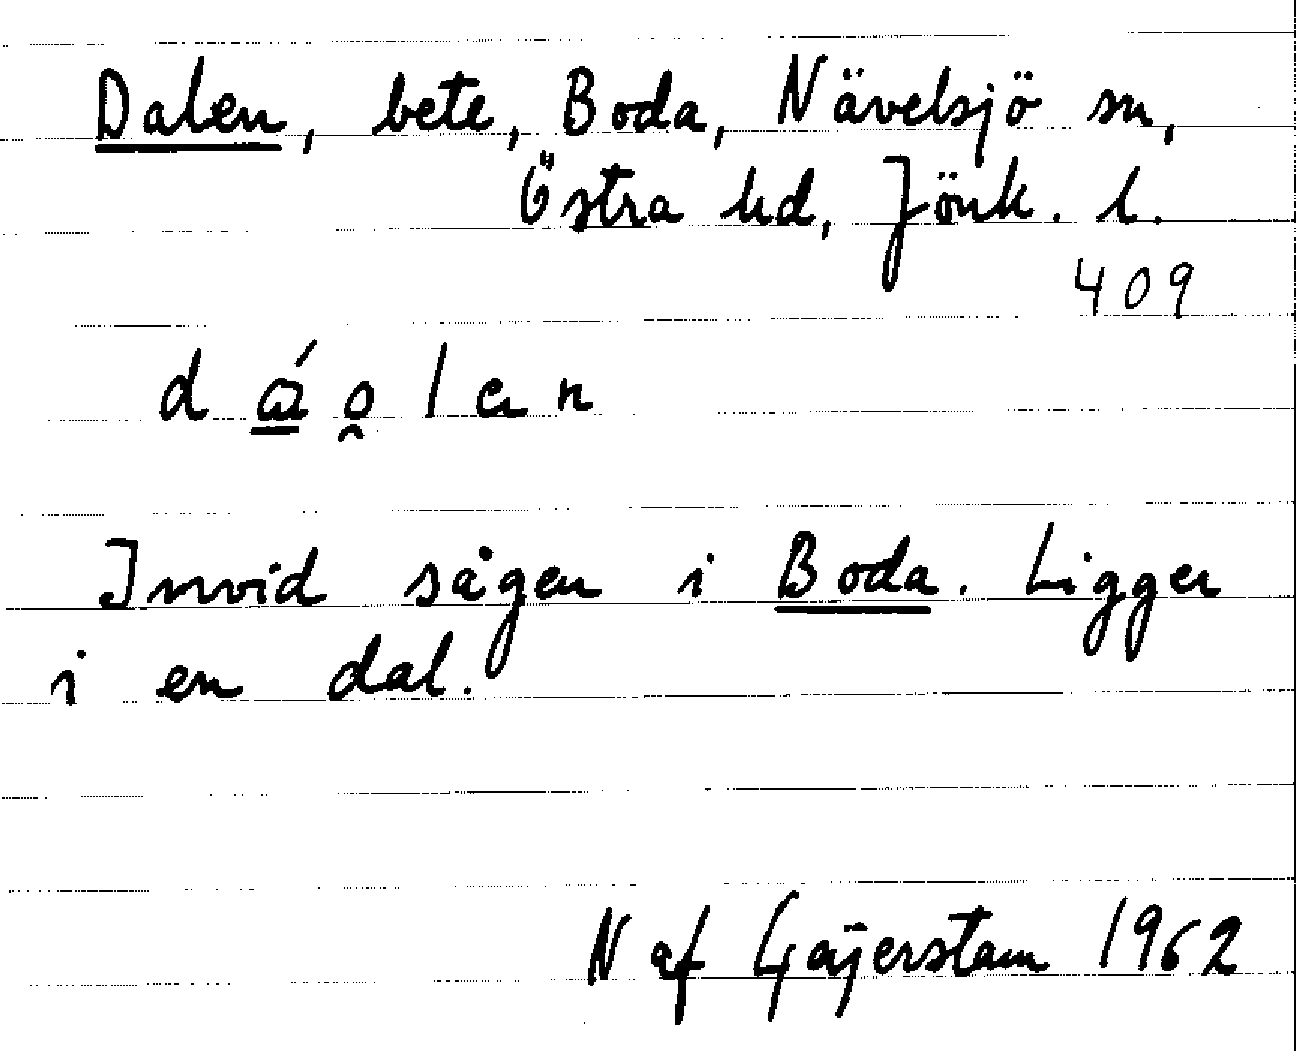 Dalen, bete, Boda, Nävelsjö sn,
Östra hd, Jönk. l.
409
d á̱ o̯ l e n
Invid sågen i Boda. Ligger
i en dal.
N af Gejerstam 1962